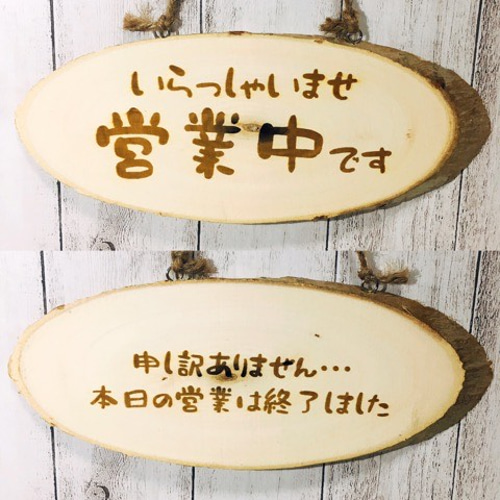 いらっしゃいませ
営業中です
申し訳ありません…
本日の営業は終了しました